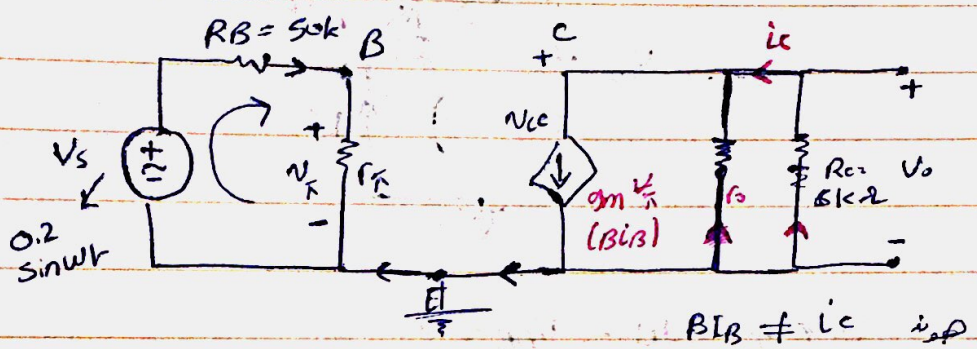 RB = 50k
B
C
ic
+
+
+
Vs
+
vπ
rπ
vce
gm vπ
(BiB)
ro
Rc=
6kΩ
Vo
-
-
0.2
sinωt
E
BIB ≠ ic